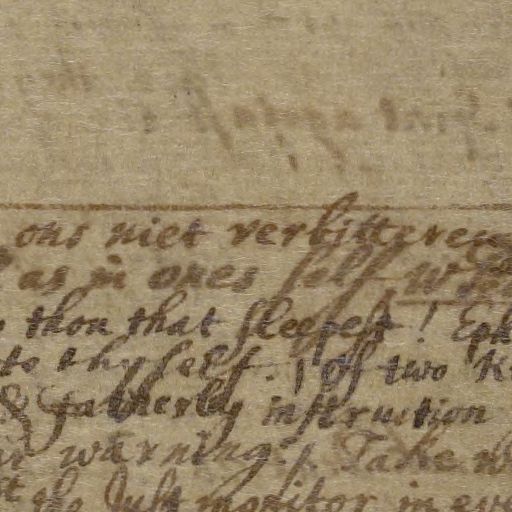 ons niet verbitteren
as in ones self
thou that sleepest! Eph
to thy self. Of two
& fatherly instruction
warning. Take
the Just monitor in